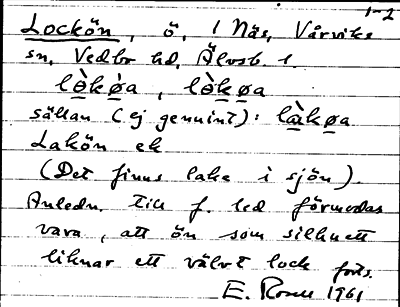 1-2
Lockön, ö, i Näs, Vårviks
sn, Vedbo hd, Älvsb. l.
lòkø̀a, lòkøa
sällan (ej genuint): làkøa
Lakön ek
(Det finns lake i sjön).
Anledn. till f. led förmodas
vara, att ön som silhuett
liknar ett välvt lock forts.
E. 1961